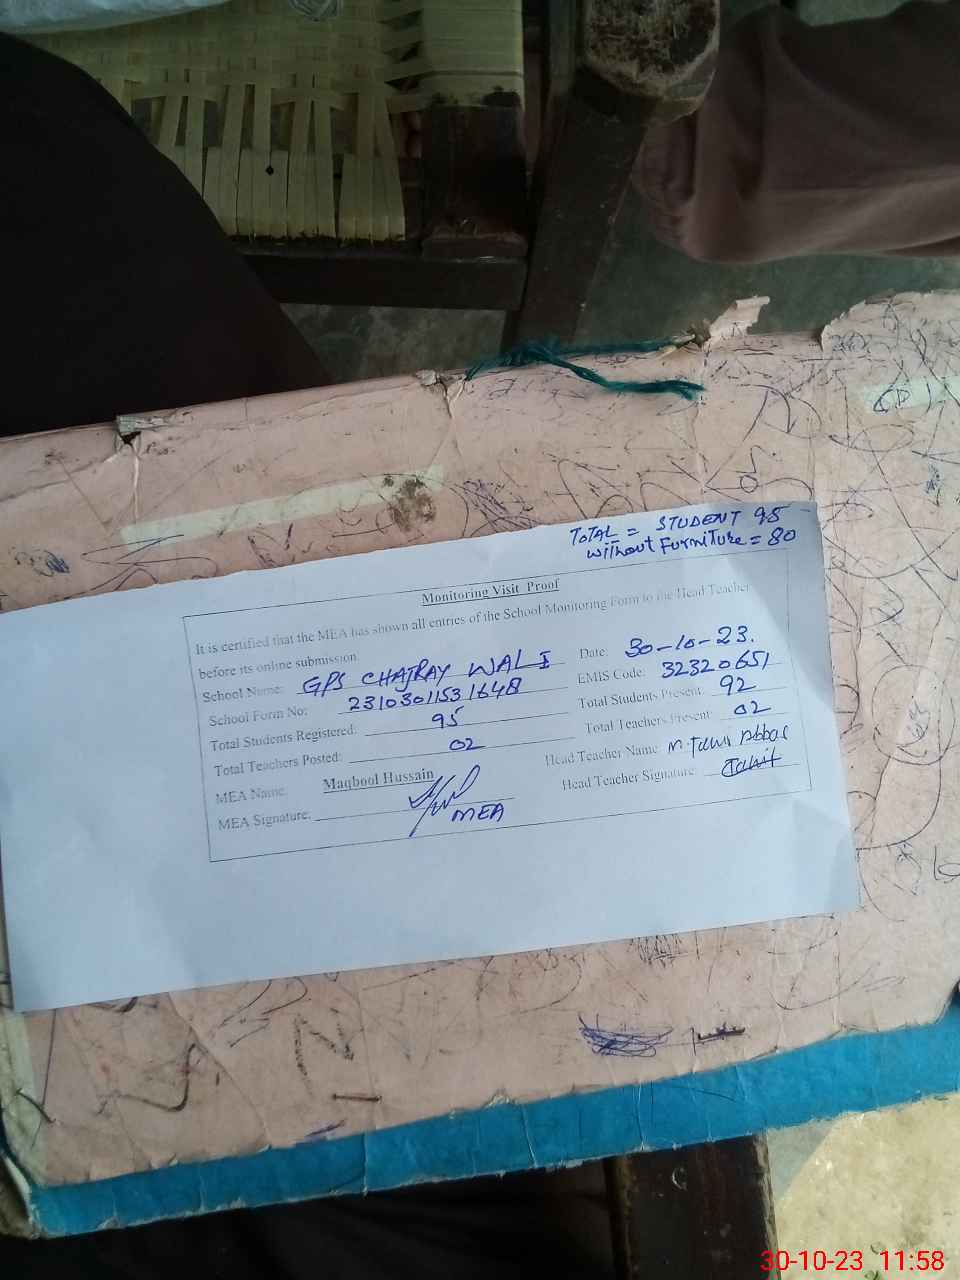 TOTAL = STUDENT 95
without FurniTure = 80
Monitoring Visit Proof
It is certified that the MEA has shown all entries of the School Monitoring Form to the Head Teacher
before its online submission.
School Name: GPS CHAJRAY WALI Date: 30-10-23.
School Form No: 23103011531648 EMIS Code: 32320651
Total Students Registered: 95 Total Students Present: 92
Total Teachers Posted: 02 Total Teachers Present: 02
MEA Name: Maqbool Hussain Head Teacher Name: M. Abbas
MEA Signature: MEA Head Teacher Signature:
30-10-23 11:58